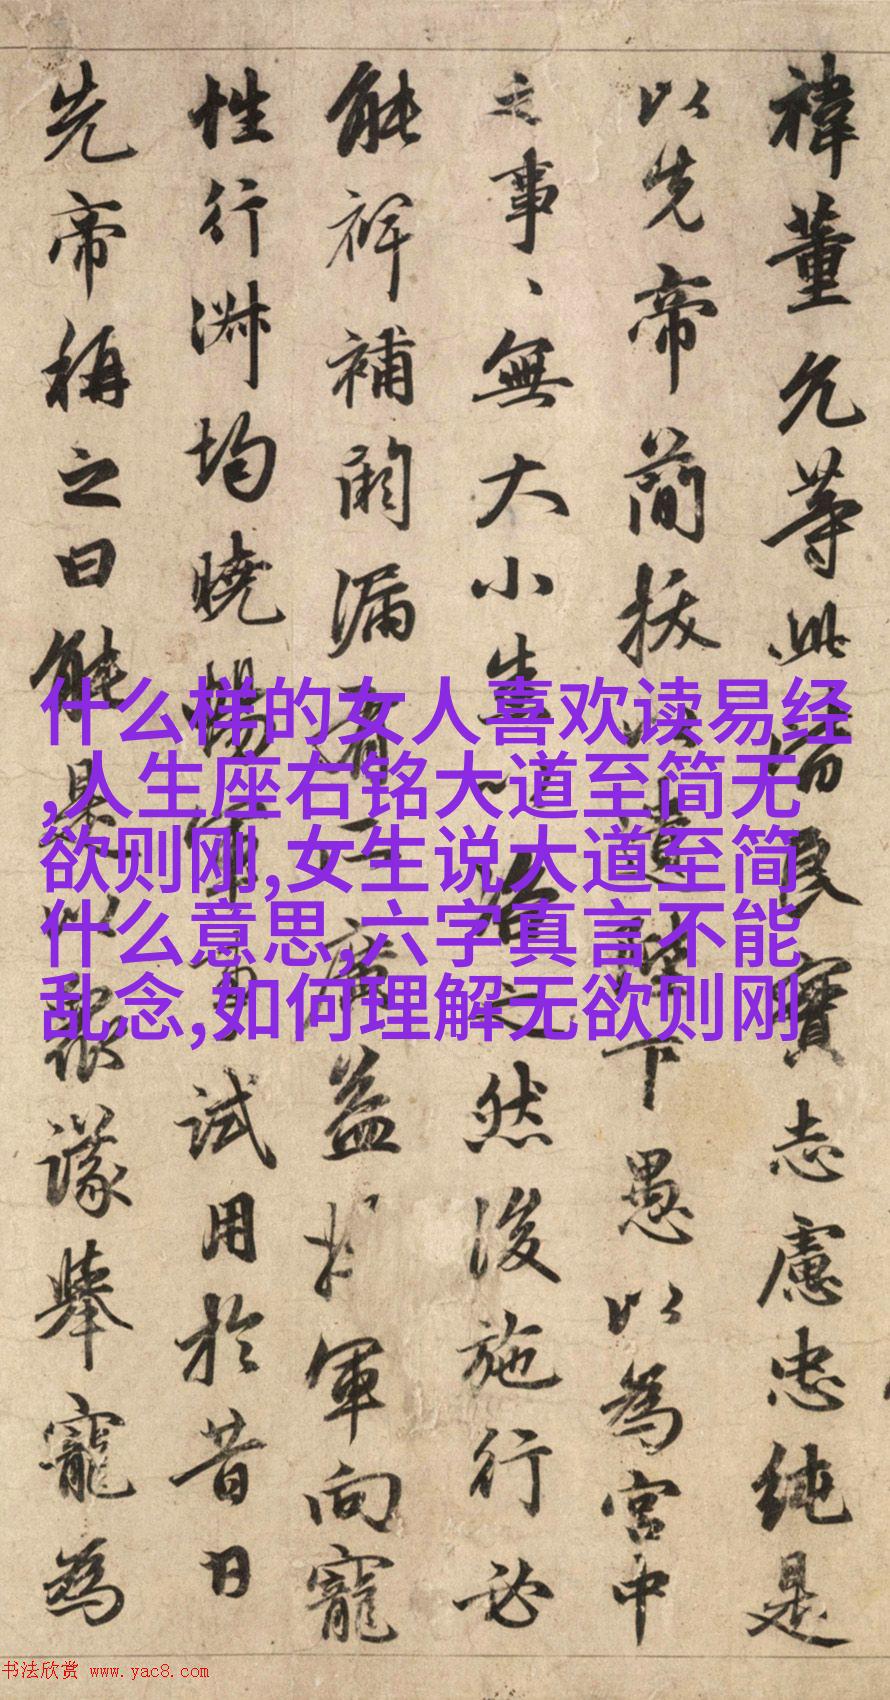 禕董允等此皆良實志慮忠純是
以先帝簡拔以遺陛下愚以為宮中
之事、無大小悉以咨之然後施行必
能裨補闕漏有所廣益將軍向寵
性行淑均曉暢軍事試用於昔日
先帝稱之曰能是以眾議舉寵為
什么样的女人喜欢读易经
,人生座右铭大道至简无
欲则刚,女生说大道至简
什么意思,六字真言不能
乱念,如何理解无欲则刚
书法欣赏 www.yac8.com